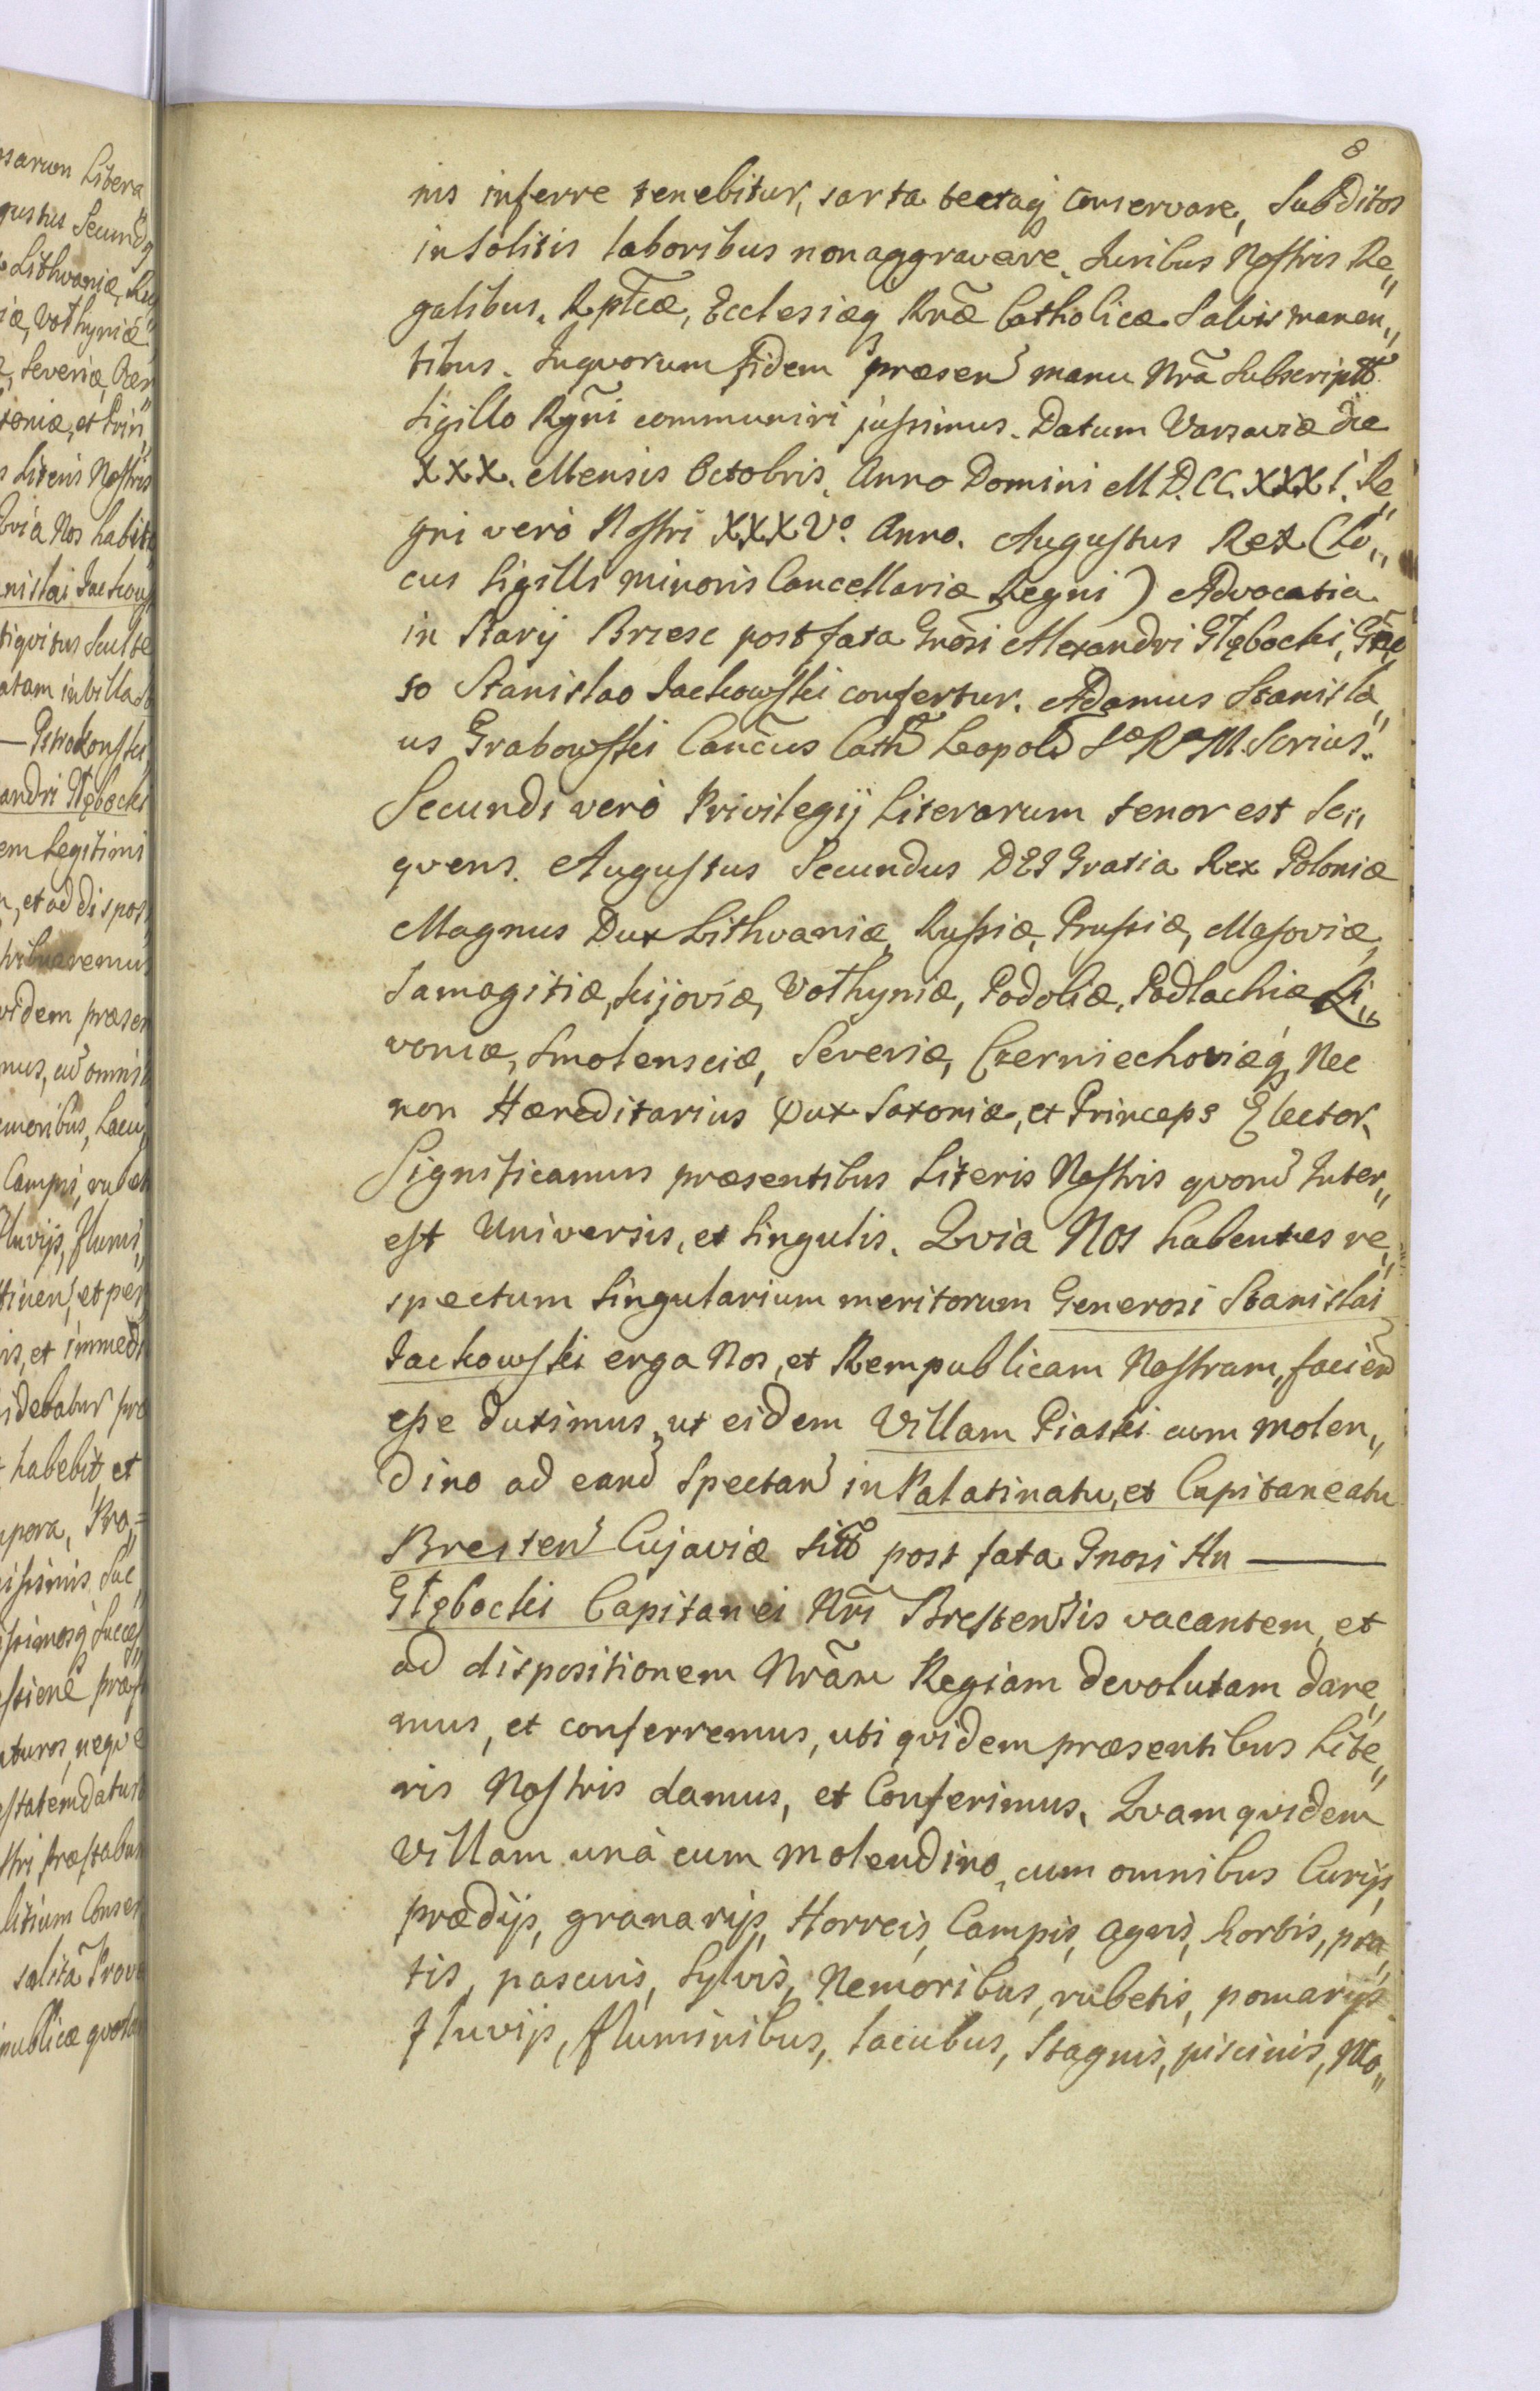 8
nis inferre tenebitur, sarta tectaq̃ conservare, Subditos
insolitis laboribus non aggravare. Juribus Nostris Re„
galibus. Rptcæ, Ecclesiæq̃ Rnæ Catholicæ Salvis manen„
tibus. In qvorum fidem præsen manu Nrã Subscriptt
Sigillo Rgñi communiri jussimus. Datum Varsaviæ die
XXX. Mensis Octobris. Anno Domini M D.CC.XXXI. Re„
gni verò Nostri XXXVº. Anno. Augustus Rex (Lo„
cus Sigilli minoris Cancellariæ Regni) Advocatia
in Stary Brzesc post fata Gnõsi Alexandri Głębocki,
so Stanislao Jackowski confertur. Adamus Stanisla„
us Grabowski Cancũs Cath Leopold Sæ Ræ M. Scrius.
Secundi verò Privilegij Literarum tenor est Se„
qvens. Augustus Secundus DEI Gratia Rex Poloniæ
Magnus Dux Lithvaniæ, Russiæ, Prussiæ, Masoviæ,
Samogitiæ, Kijoviæ, Volhyniæ, Podoliæ, Podlachiæ Li„
voniæ, Smolensciæ, Severiæ, Czerniechoviæq̃, Nec
non Hæreditarius Dux Saxoniæ, et Princeps Elector.
Significamus præsentibus Literis Nostris qvorũ Inter„
est Universis, et Singulis. Qvia Nos habentes re„
spectum Singularium meritorum Generosi Stanislai
Jackowski erga Nos, et Rempublicam Nostram, facien
esse duximus, ut eidem Villam Piaski cum molen„
dino ad eand Spectan in Palatinatu, et Capitaneatu
Bresten Cujaviæ Sitt post fata Gnosi An ———
Głębocki Capitanei Nri Brestensis vacantem, et
ad dispositionem Nrãm Regiam devolutam dare„
mus, et conferremus, uti qvidem præsentibus Lite„
ris Nostris damus, et Conferimus. Qvam qvidem
Villam unà cum molendino, cum omnibus Curijs,
prædijs, granarijs, Horreis, Campis, agris, hortis, pra„
tis, pascuis, Sylvis, Nemoribus, rubetis, pomarijs
fluvijs, fluminibus, lacubus, Stagnis, piscinis, Mo„